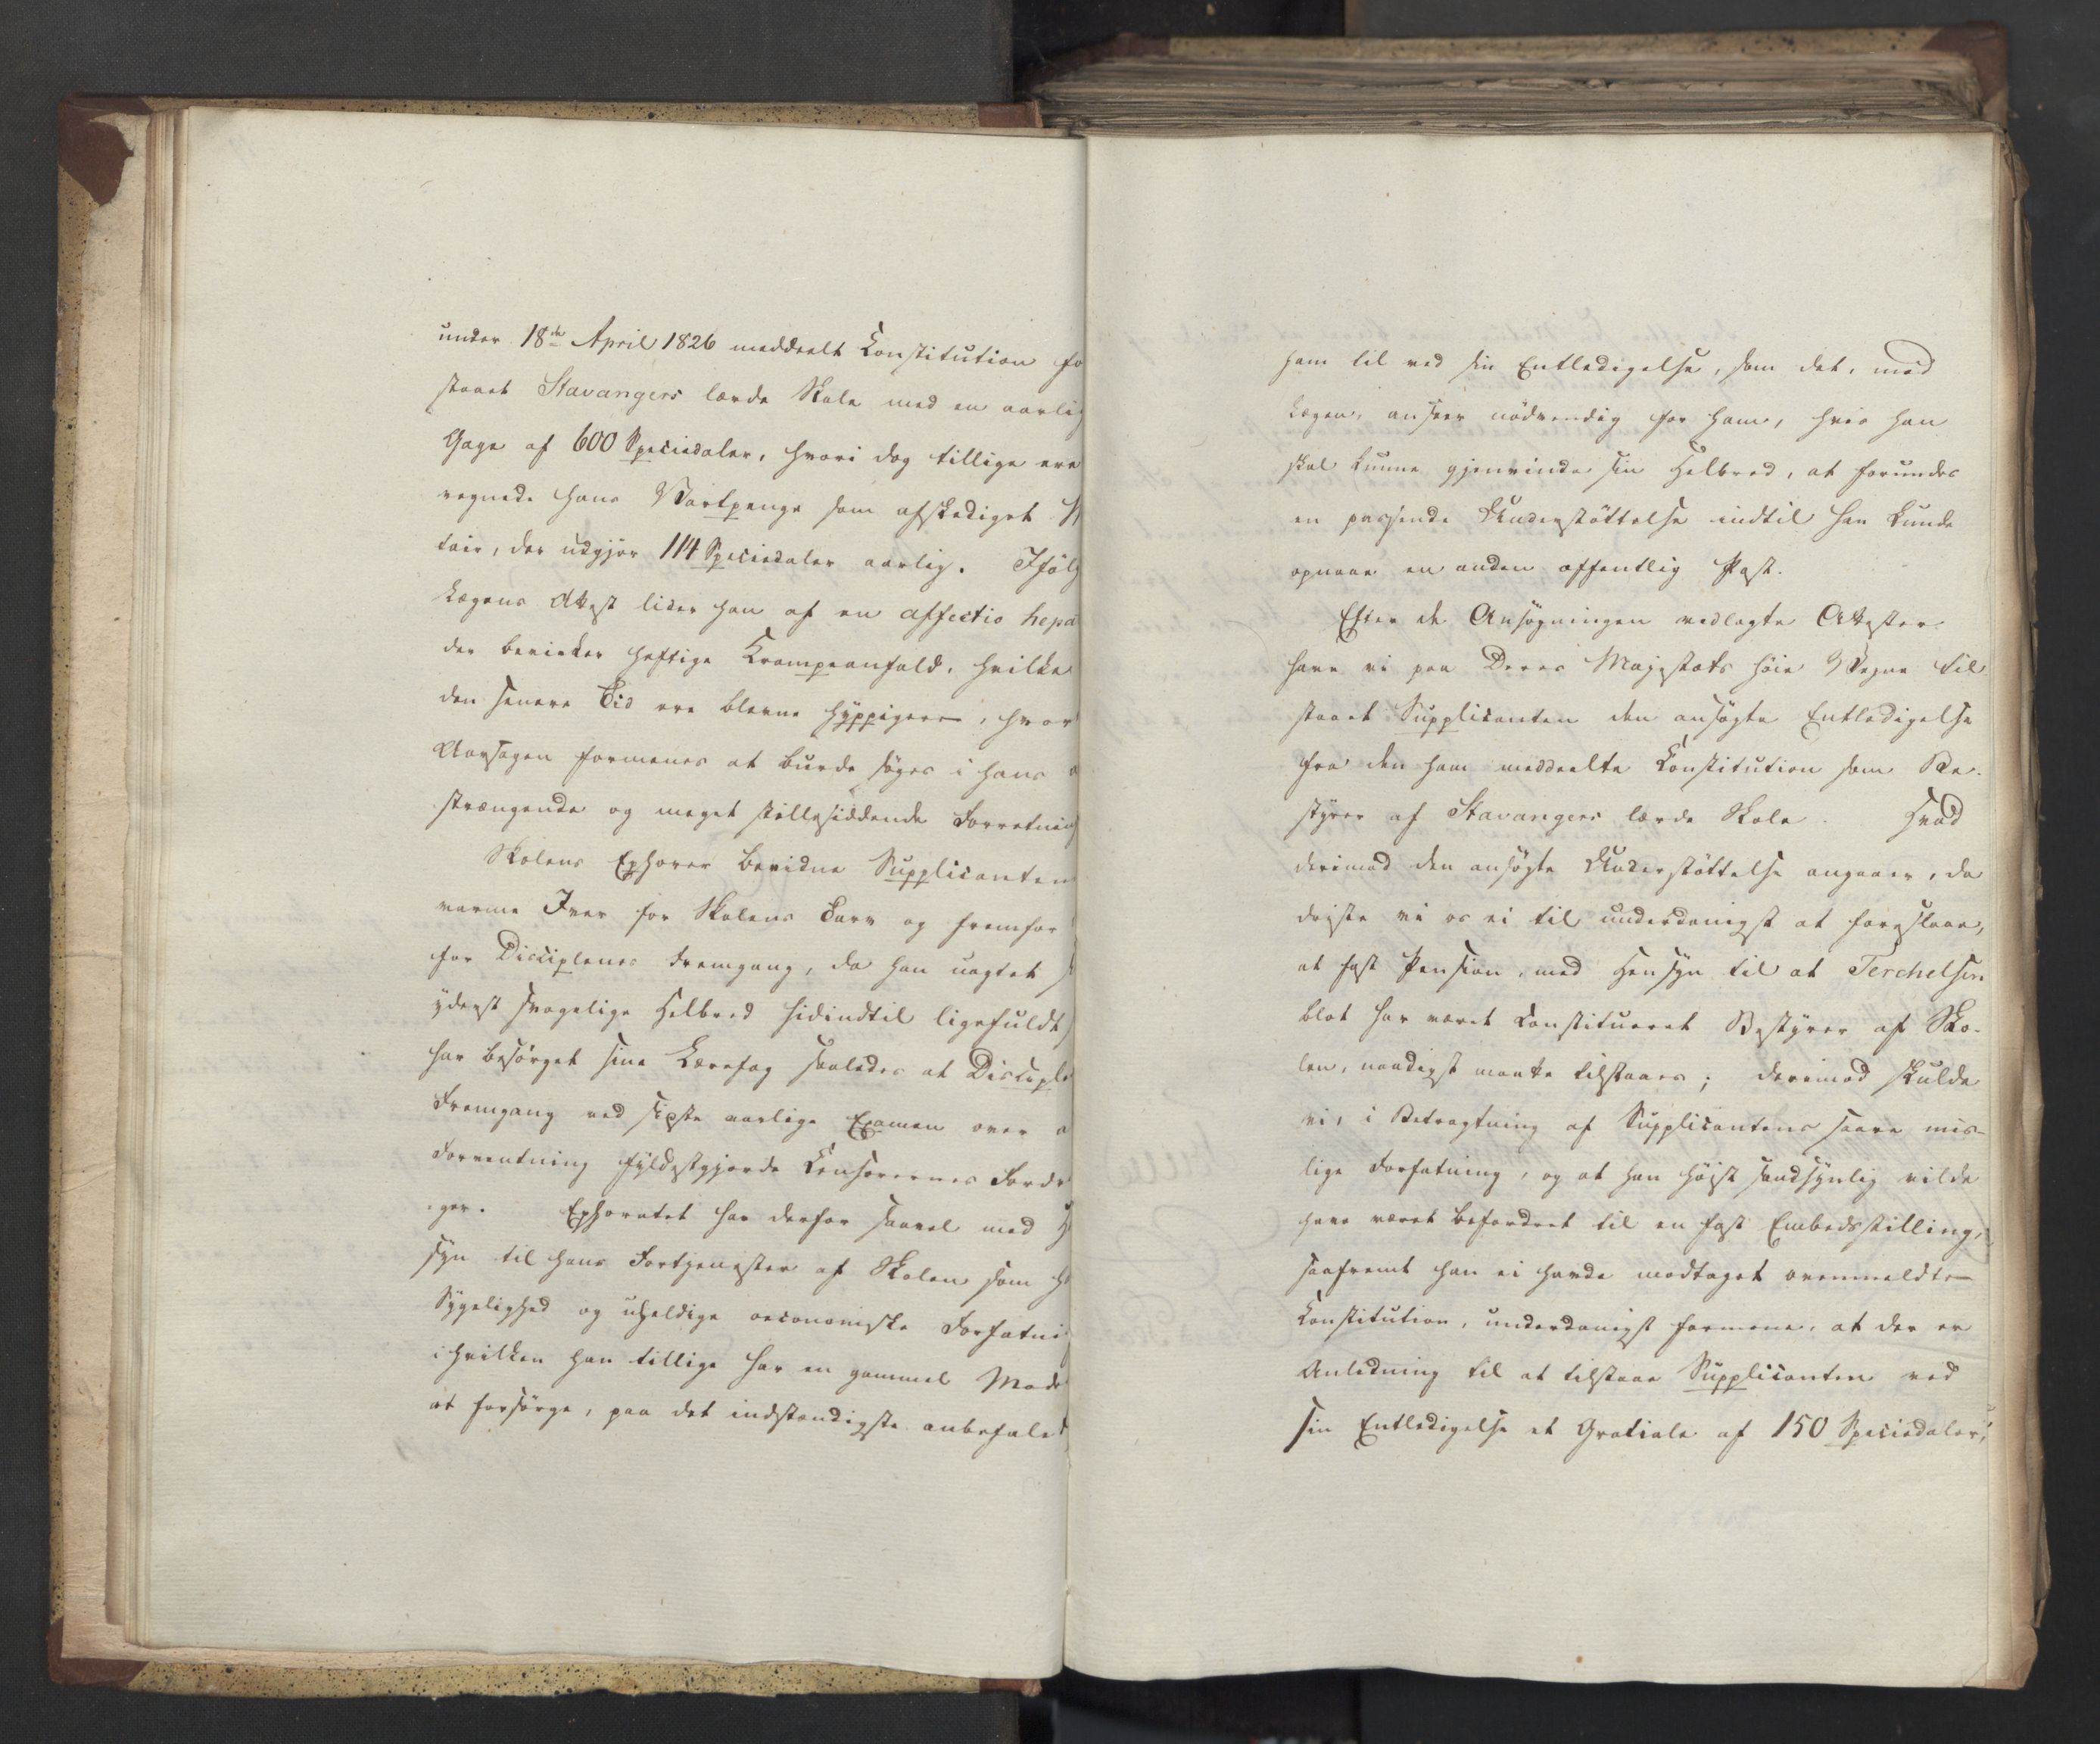 under 18de April 1826 meddeelt Constitution fo
staaet Stavangers lærde Skole med en aarlig
Gage af 600 Speciedaler, hvori dog tillige ere
regnede hans Vartpenge som afskediget
tair, der udgjør 114 Speciedaler aarlig. Ifølg
Lægens Attest lider han af en affectio hepa
der bevirker heftige Krampeanfald, hvilke
den senere Tid ere blevne hyppigere, hvor
Aarsagen formenes at burde søges i hans a
strængende og meget stillesiddende Forretning
Skolens Ephorer bevidne Supplicanten
varme Iver for Skolens Tarv og fremfor
for Disciplenes Fremgang, da han uagtet s
yderst svagelige Helbred hidindtil ligefuldt
har besørget sine Lærefag saaledes at Disciple
Fremgang ved sidste aarlige Examen over a
Forventning fyldestgjorde Censorernes Fordr
ger. Ephoratet har derfor saavel med H
syn til hans Fortjenester af Skolen som h
Sygelighed og uheldige oeconomiske Forfatni
i hvilken han tillige har en gammel Mode
at forsørge, paa det indstændigste anbefalet
ham til ved sin Entledigelse, som det, med
Lægen, anseer nødvendig for ham, hvis han
skal kunne gjenvinde sin Helbred, at forundes
en passende Understøttelse indtil han kunde
opnaae en anden offentlig Post.
Efter de Ansøgningen vedlagte Attester
have vi paa Deres Majestæts høie Vegne til
staaet Supplicanten den ansøgte Entledigelse
fra den ham meddeelte Constitution som Be-
styrer af Stavangers lærde Skole. Hvad
derimod den ansøgte Understøttelse angaaer, da
driste vi os ei til underdanigst at foreslaae,
at fast Pension, med Hensyn til at Terchelsen
blot har været constitueret Bestyrer af Sko-
len, naadigst maatte tilstaaes; derimod skulde
vi, i Betragtning af Supplicantens saare mis-
lige Forfatning, og at han høist sandsynlig vilde
have været befordret til en fast Embedsstilling,
saafremt han ei havde modtaget ovenmeldte
Constitution, underdanigst formene, at der er
Anledning til at tilstaae Supplicanten ved
sin Entledigelse et Gratiale af 150 Speciedaler,